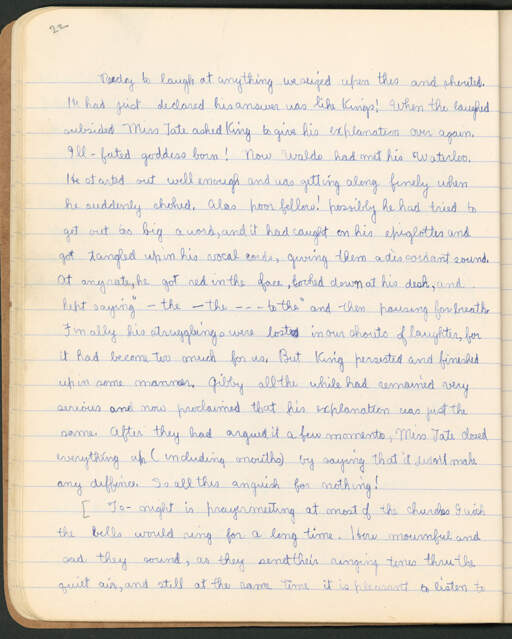 22
Ready to laugh at anything we seized upon this and shouted.
He had just declared his answer was like Kings! When the laughed
subsided Miss Tate asked King to give his explanation over again.
Ill-fated goddess born! Now Waldo had met his Waterloo.
He started out well enough and was getting along finely when
he suddenly choked. Alas poor fellow! possibly he had tried to
get out too big a word, and it had caught on his epiglottes and
got tangled up in his vocal cords, giving them a discordant sound.
At any rate, he got red in the face, looked down at his desk, and
kept saying "— the — the - - - to the" and then pausing for breath
Finally his strugglings were lost in our shouts of laughter, for
it had become too much for us. But King persisted and finished
up in some manner. Gilby all the while had remained very
serious and now proclaimed that his explanation was just the
same. After they had argued it a few moments, Miss Tate closed
everything up (including mouths) by saying that it didn't make
any diffince. So all this anguish for nothing!
[ To-night is prayermeeting at most of the churches I wish
the bells would ring for a long time. How mournful and
sad they sound, as they send their ringing tones thru the
quiet air, and still at the same time it is pleasant to listen to